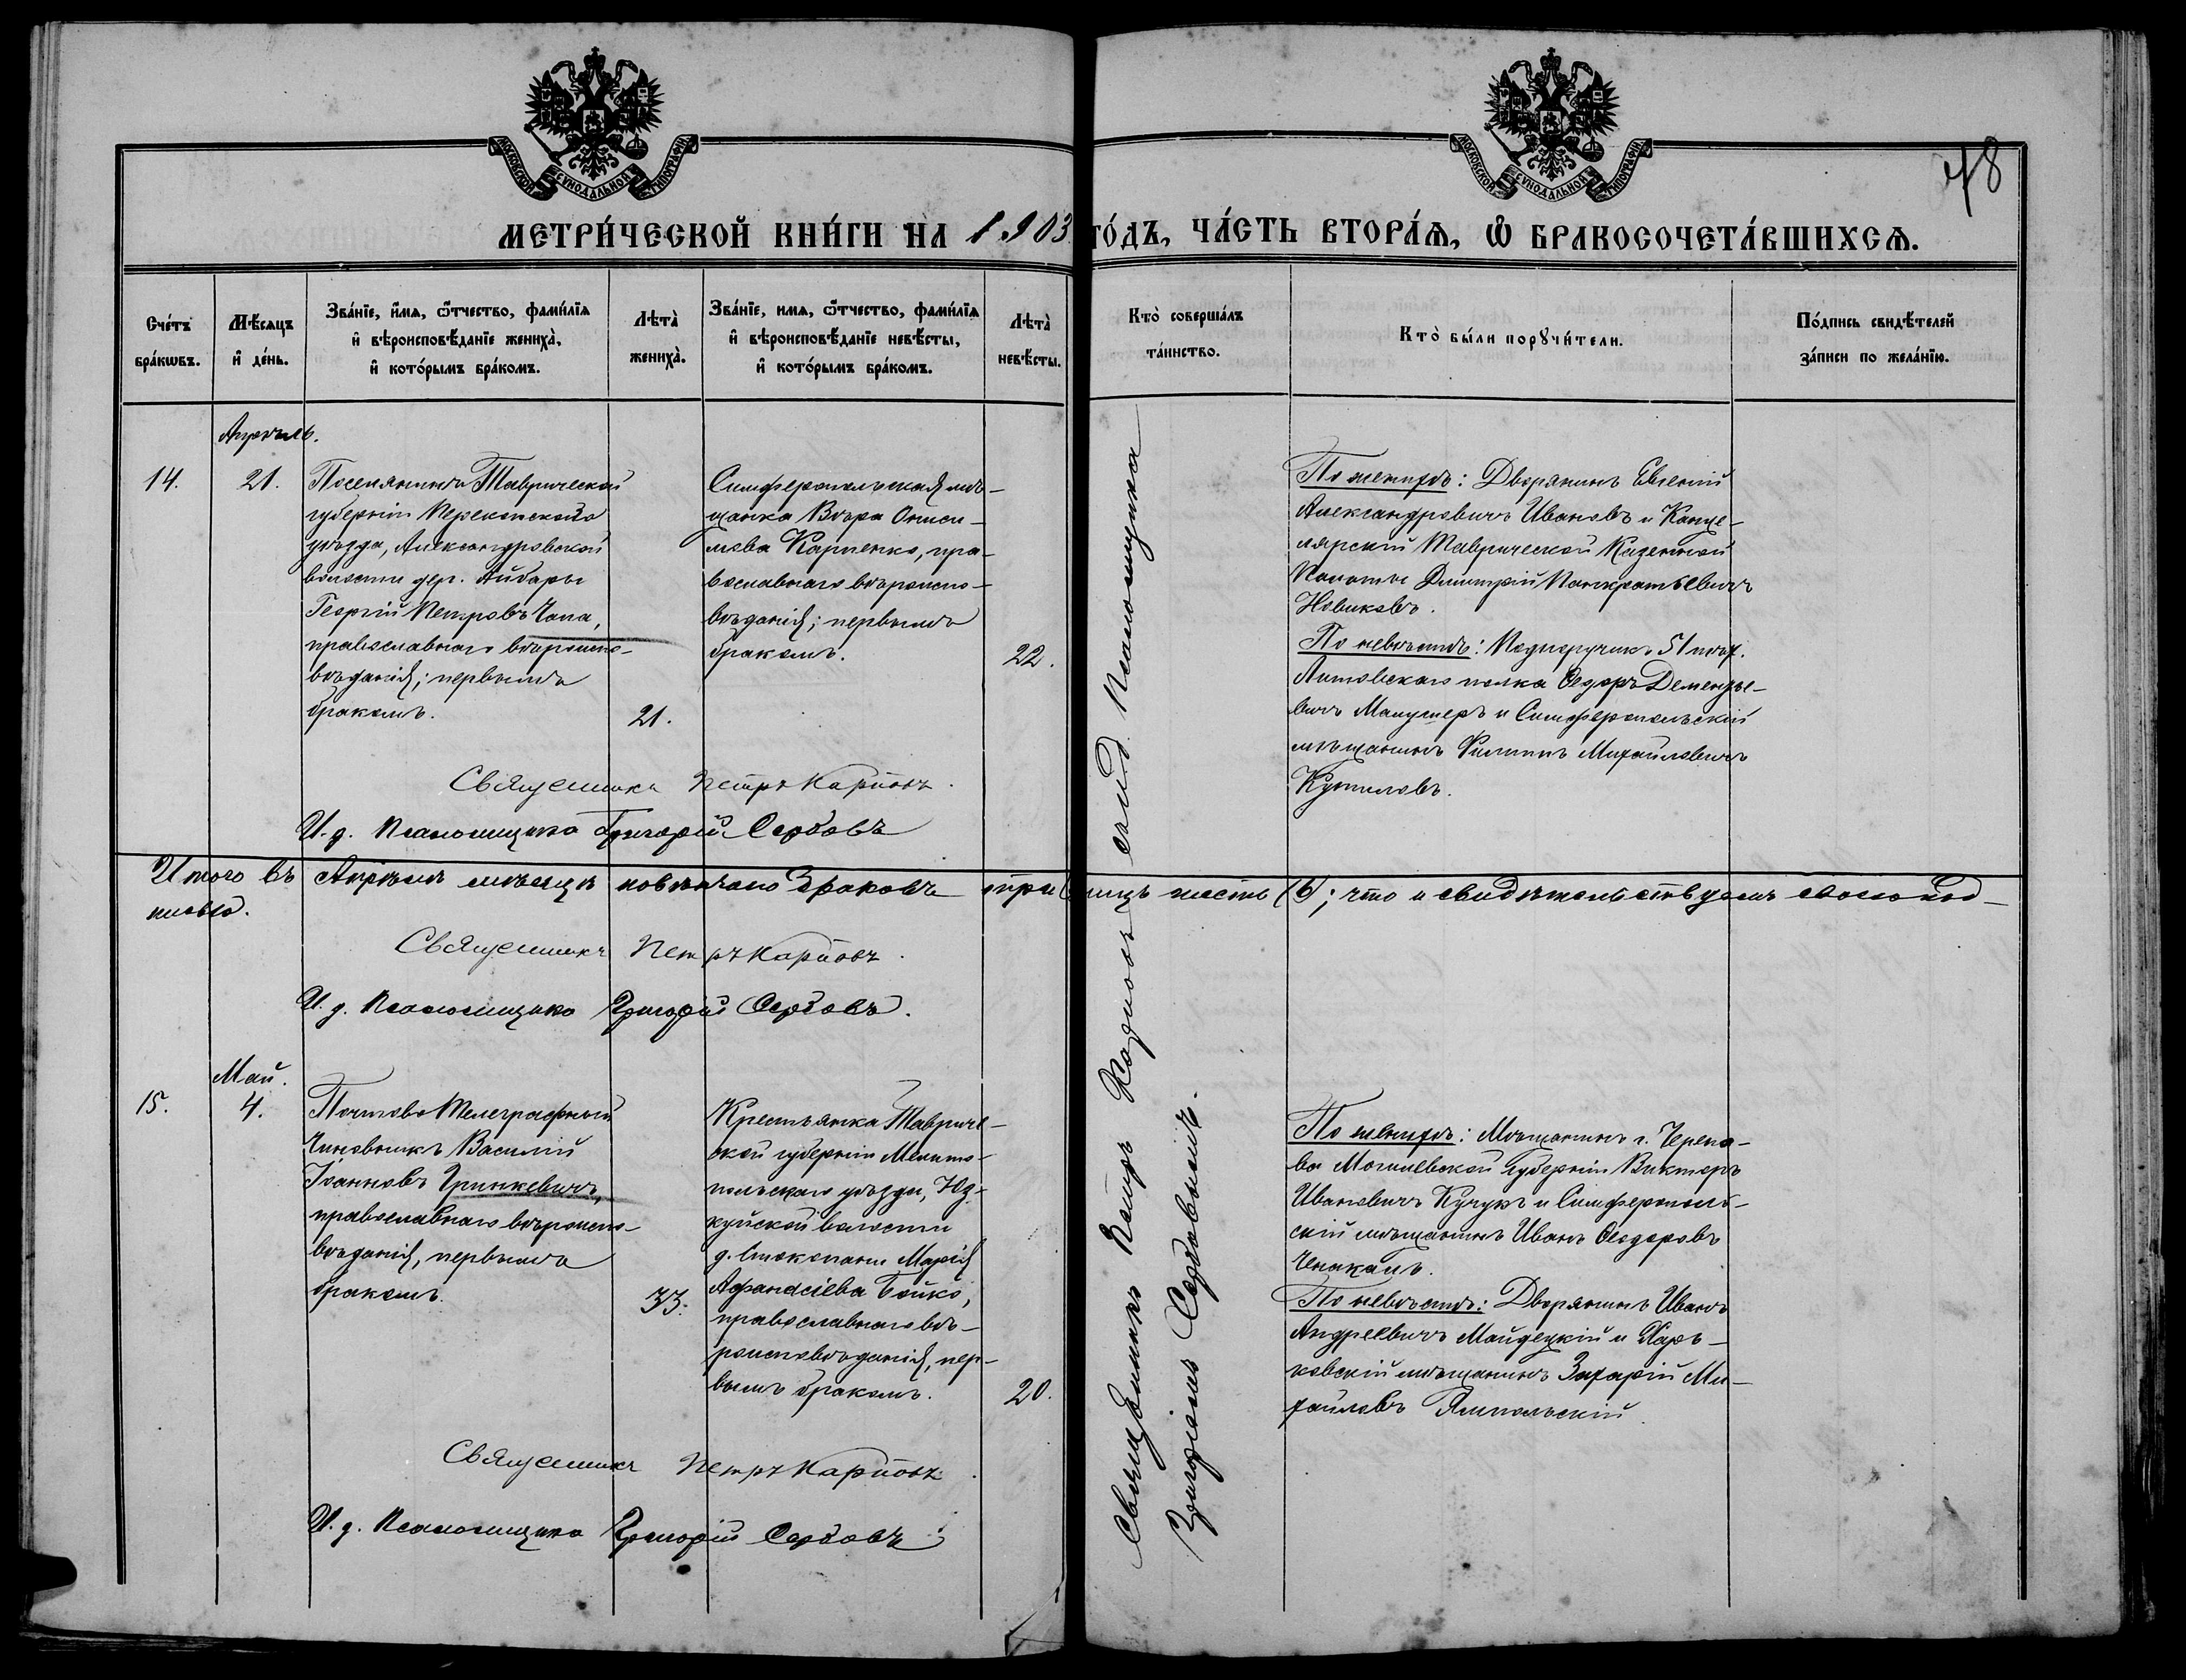 МОСКОВСКОЙ СѴНОДАЛЬНОЙ ТИПОГРАФІИ
МОСКОВСКОЙ СѴНОДАЛЬНОЙ ТИПОГРАФІИ
48
МЕТРИ́ЧЕСКОЙ КНИ́ГИ НА 1903 ГО́ДЪ, ЧА́СТЬ ВТОРА́Ѧ, Ѽ БРАКОСОЧЕТА́ВШИХСѦ.
Сче́тъ бра́кѡвъ.
Мѣ́сѧцъ и҆ де́нь.
Зва́нїе, и҆́мѧ, ѻ҆́тчество, фами́лїѧ
и҆ вѣроисповѣ́данїе жениха̀,
и҆ кото́рымъ бра́комъ.
Лѣта̀ жениха̀.
Зва́нїе, имѧ, ѻ҆́тчество, фами́лїѧ
и҆ вѣроисповѣ́данїе невѣ́сты,
и҆ кото́рымъ бра́комъ.
Лѣта̀ невѣ́сты.
Кто̀ соверша́лъ
та́инство.
Кто̀ бы́ли порꙋчи́тели.
По́дпись свидѣ́телей
за́писи по жела́нїю.
Апрѣль.
14.
21.
Поселянинъ Таврической
губерніи Перекопскаго
уѣзда, Александровской
волости дер. Айбары
Георгій Петровъ Чапа,
православнаго вѣроиспо-
вѣданія; первымъ
бракомъ.
21.
Симферопольская мѣ-
щанка Вѣра Ониси-
мова Карпенко, пра-
вославнаго вѣроиспо-
вѣданія; первымъ
бракомъ.
22.
Священникъ Петръ Карповъ.
И. д. Псаломщика Григорій Сербовъ
По женихѣ: Дворянинъ Евгеній
Александровичъ Ивановъ и Канце-
лярскій Таврической Казенной
Палаты Димитрій Панкратьевичъ
Новиковъ.
По невѣстѣ: Подпоручикъ 51 пѣх.
Литовскаго полка Ѳедоръ Дементье-
вичъ и Симферопольскій
мѣщанинъ Филиппъ Михайловичъ
Итого въ Апрѣлѣ мѣсяцѣ повѣнчано браковъ шесть (6); что и свидѣтельствуемъ своею под-
писью.
Священникъ Петръ Карповъ.
И. д. Псаломщика Григорій Сербовъ.
Май.
15.
4.
Почтово Телеграфный
Чиновникъ Василій
Іоанновъ Гринкевичъ,
православнаго вѣроиспо-
вѣданія, первымъ
бракомъ.
33.
Крестьянка Тавриче-
ской губерніи Мелито-
польскаго уѣзда, Юз-
куйской волости
д. Стокопани Марія
Афанасіева Бойко,
православнаго вѣ-
роисповѣданія, пер-
вымъ бракомъ.
20.
Священникъ Петръ Карповъ.
И. д. Псаломщика Григорій Сербовъ
Священникъ Петръ Карповъ съ и. д. Псаломщика
Григоріемъ Сербовымъ.
По женихѣ: Мѣщанинъ г.
Могилевской губерніи Викторъ
Ивановичъ Кучукъ и Симферополь-
скій мѣщанинъ Иванъ Ѳеодоровъ
По невѣстѣ: Дворянинъ Иванъ
Андреевичъ Майдецкій и Харь-
ковскій мѣщанинъ Захарій Ми-
хайловъ Ямпольскій.